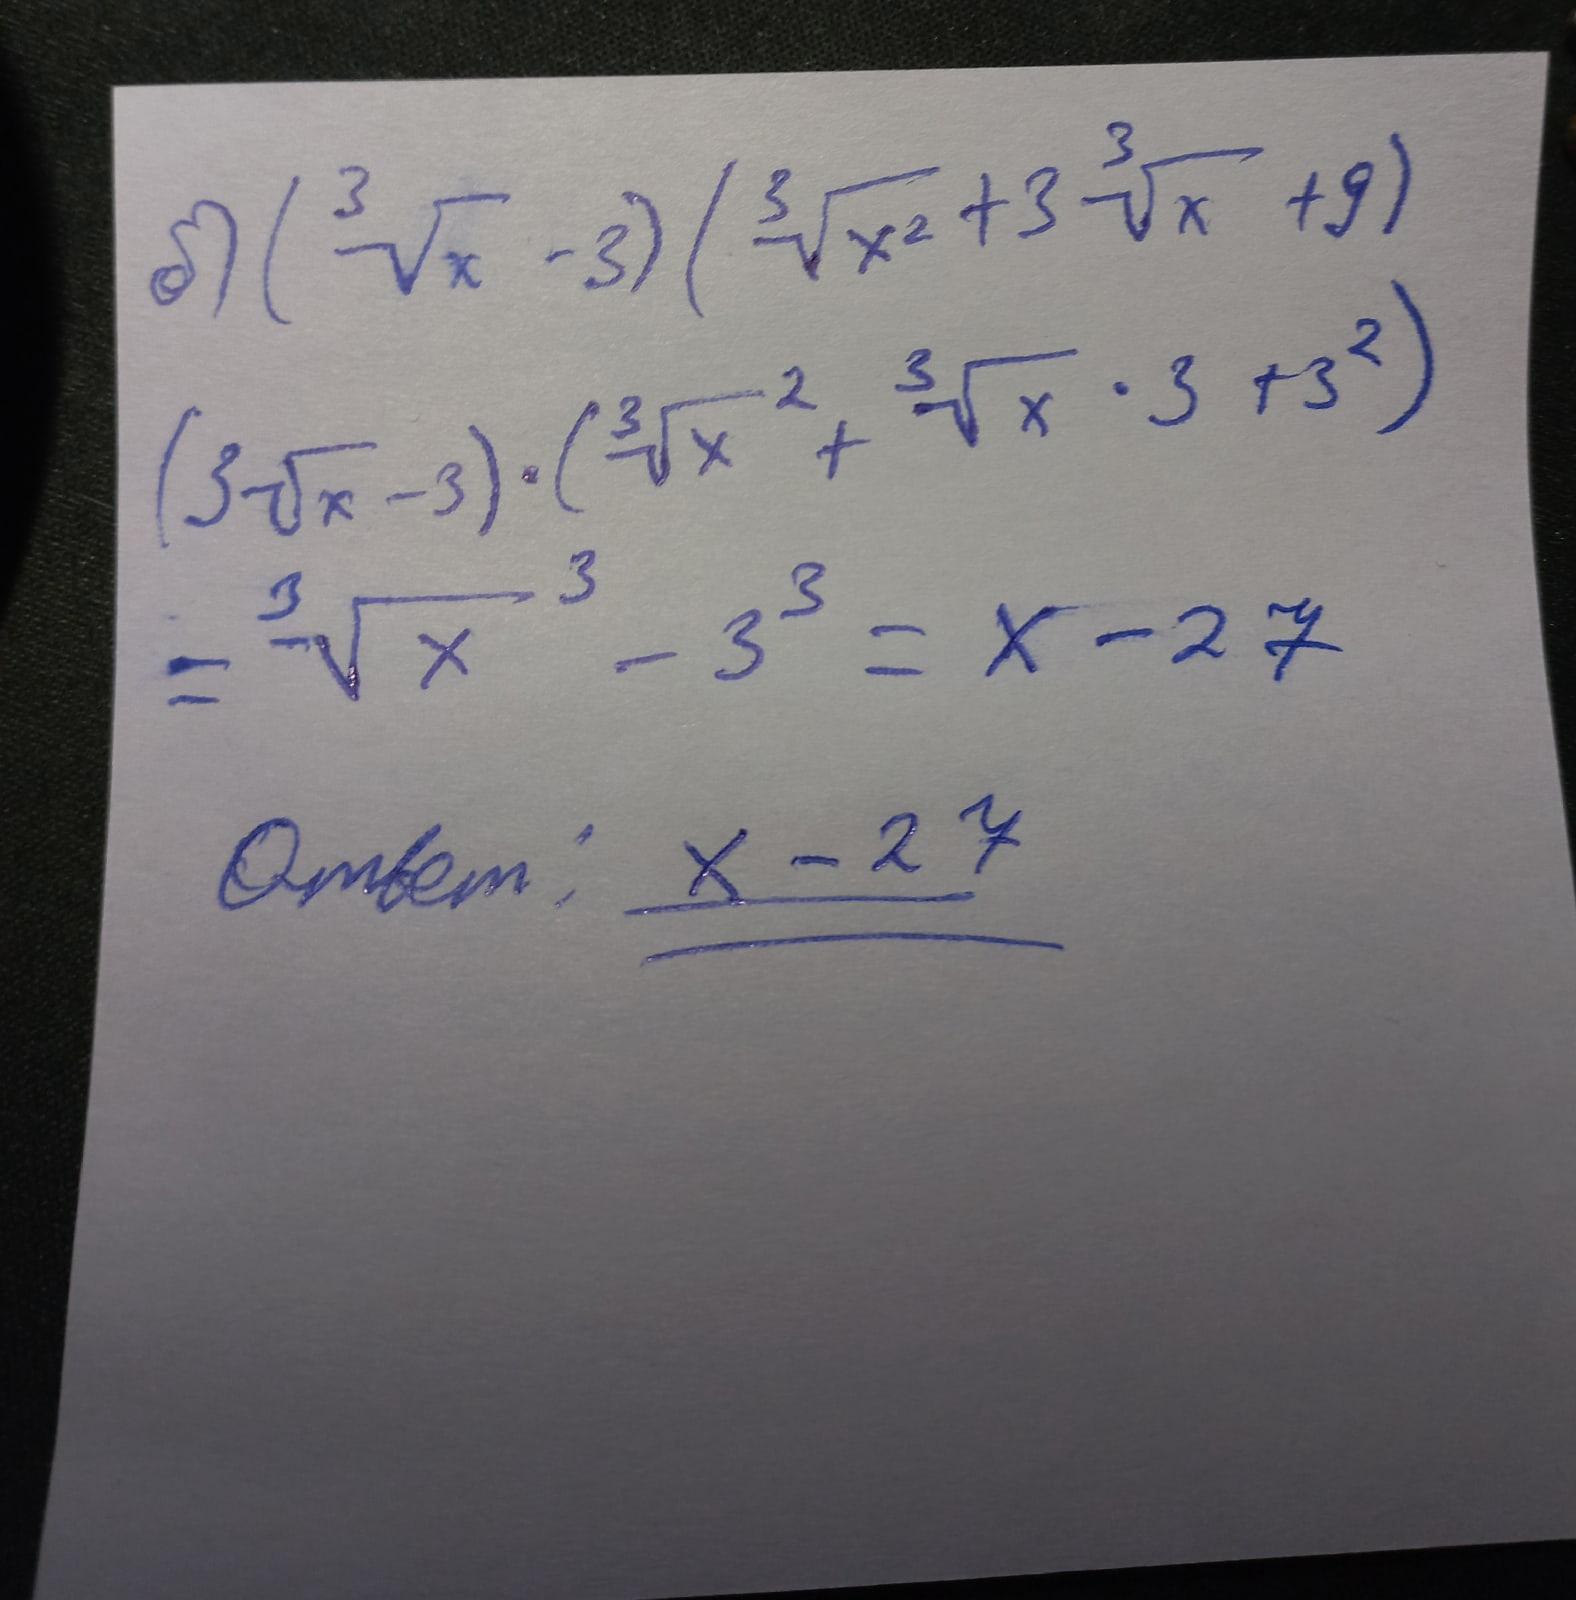 б) (∛x -3) (∛x² +3 ∛x +9)
(3√x -3) · (∛x ² + ∛x · 3 +3²)
= ∛x ³ - 3³ = x - 27
Ответ: x - 27